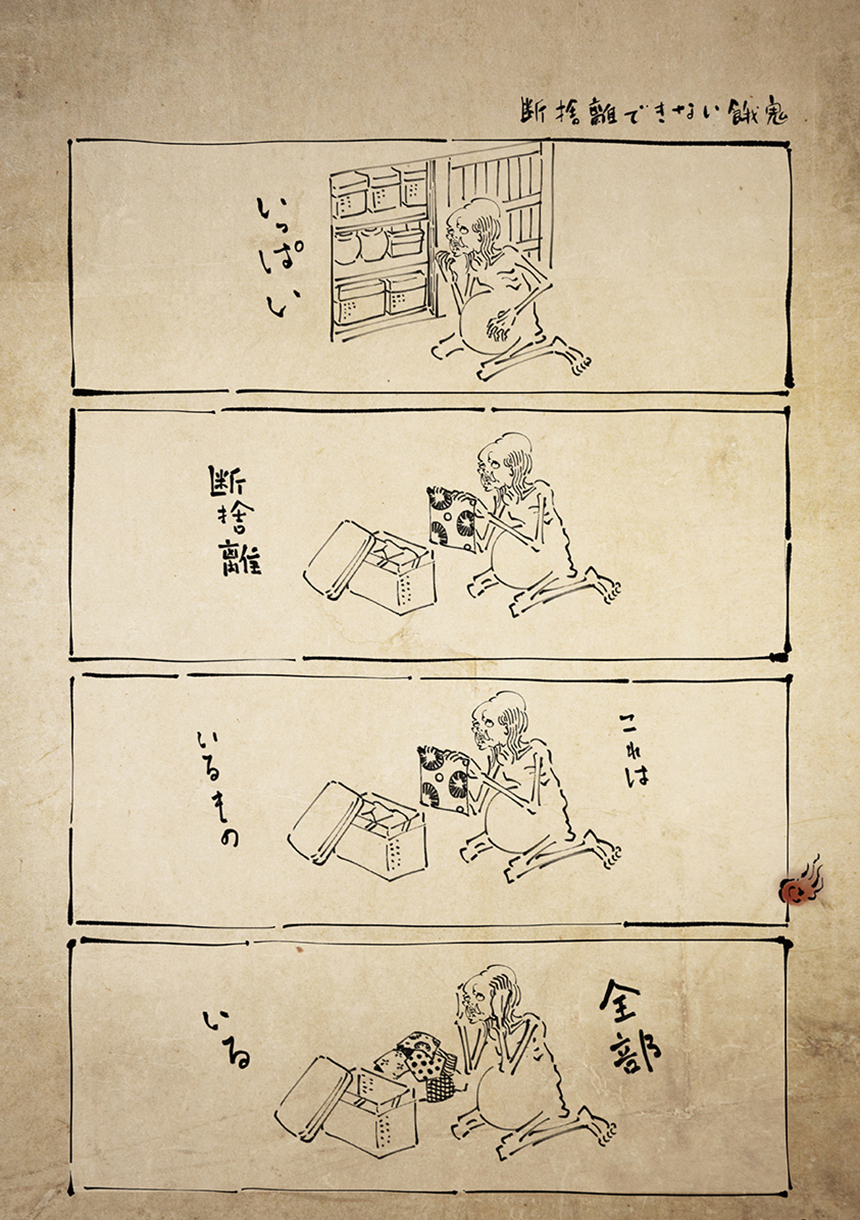 断捨離できない餓鬼
いっぱい
断捨離
これは
いるもの
全部
いる